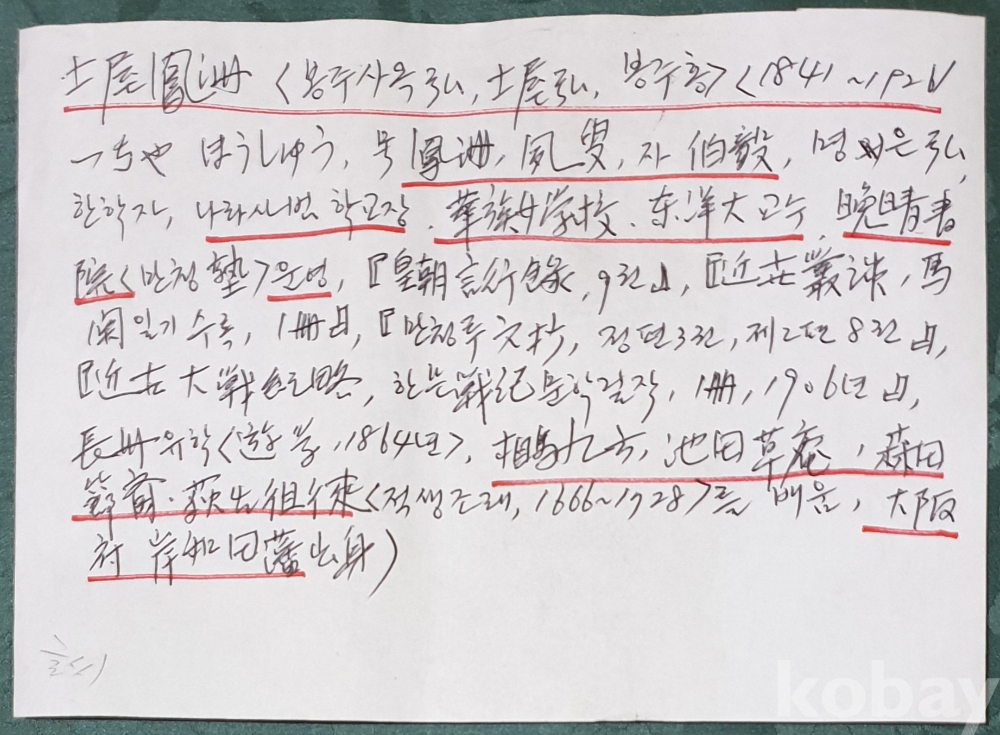 土屋鳳洲 <봉주사옥弘, 土屋弘, 봉주홍> <1841~1926
つちや ほうしゅう, 号 鳳洲, 夙叟, 자 伯毅, 명 은 弘,
한학자, 나라사범 학교장, 華族女学校, 东洋大 교수, 晩晴書
院<만청塾>운영, 『皇朝言行錄, 9권』, 『近古叢談, 馬
関일기 수록, 1冊』, 『만청루 文抄, 정편3권, 제2편 8권』,
『近古大戰紀略, 한문戰紀문학걸작, 1冊, 1906년』,
長州유학<遊学, 1864년>, 相馬九方, 池田草庵, 森田
節斎·荻生徂徠<적생조래, 1666~1728>를 배움, 大阪
府 岸和田藩出身)
kobay